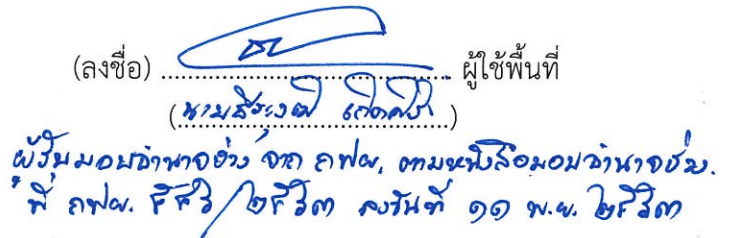 (ลงชื่อ) ................................ ผู้ใช้พื้นที่
(นาย
ผู้รับมอบอำนาจช่วง จาก กฟผ. ตามหนังสือมอบอำนาจช่วง
ที่ กฟผ. /๒๕๖๓ ลงวันที่ ๑๑ พ.ย. ๒๕๖๓